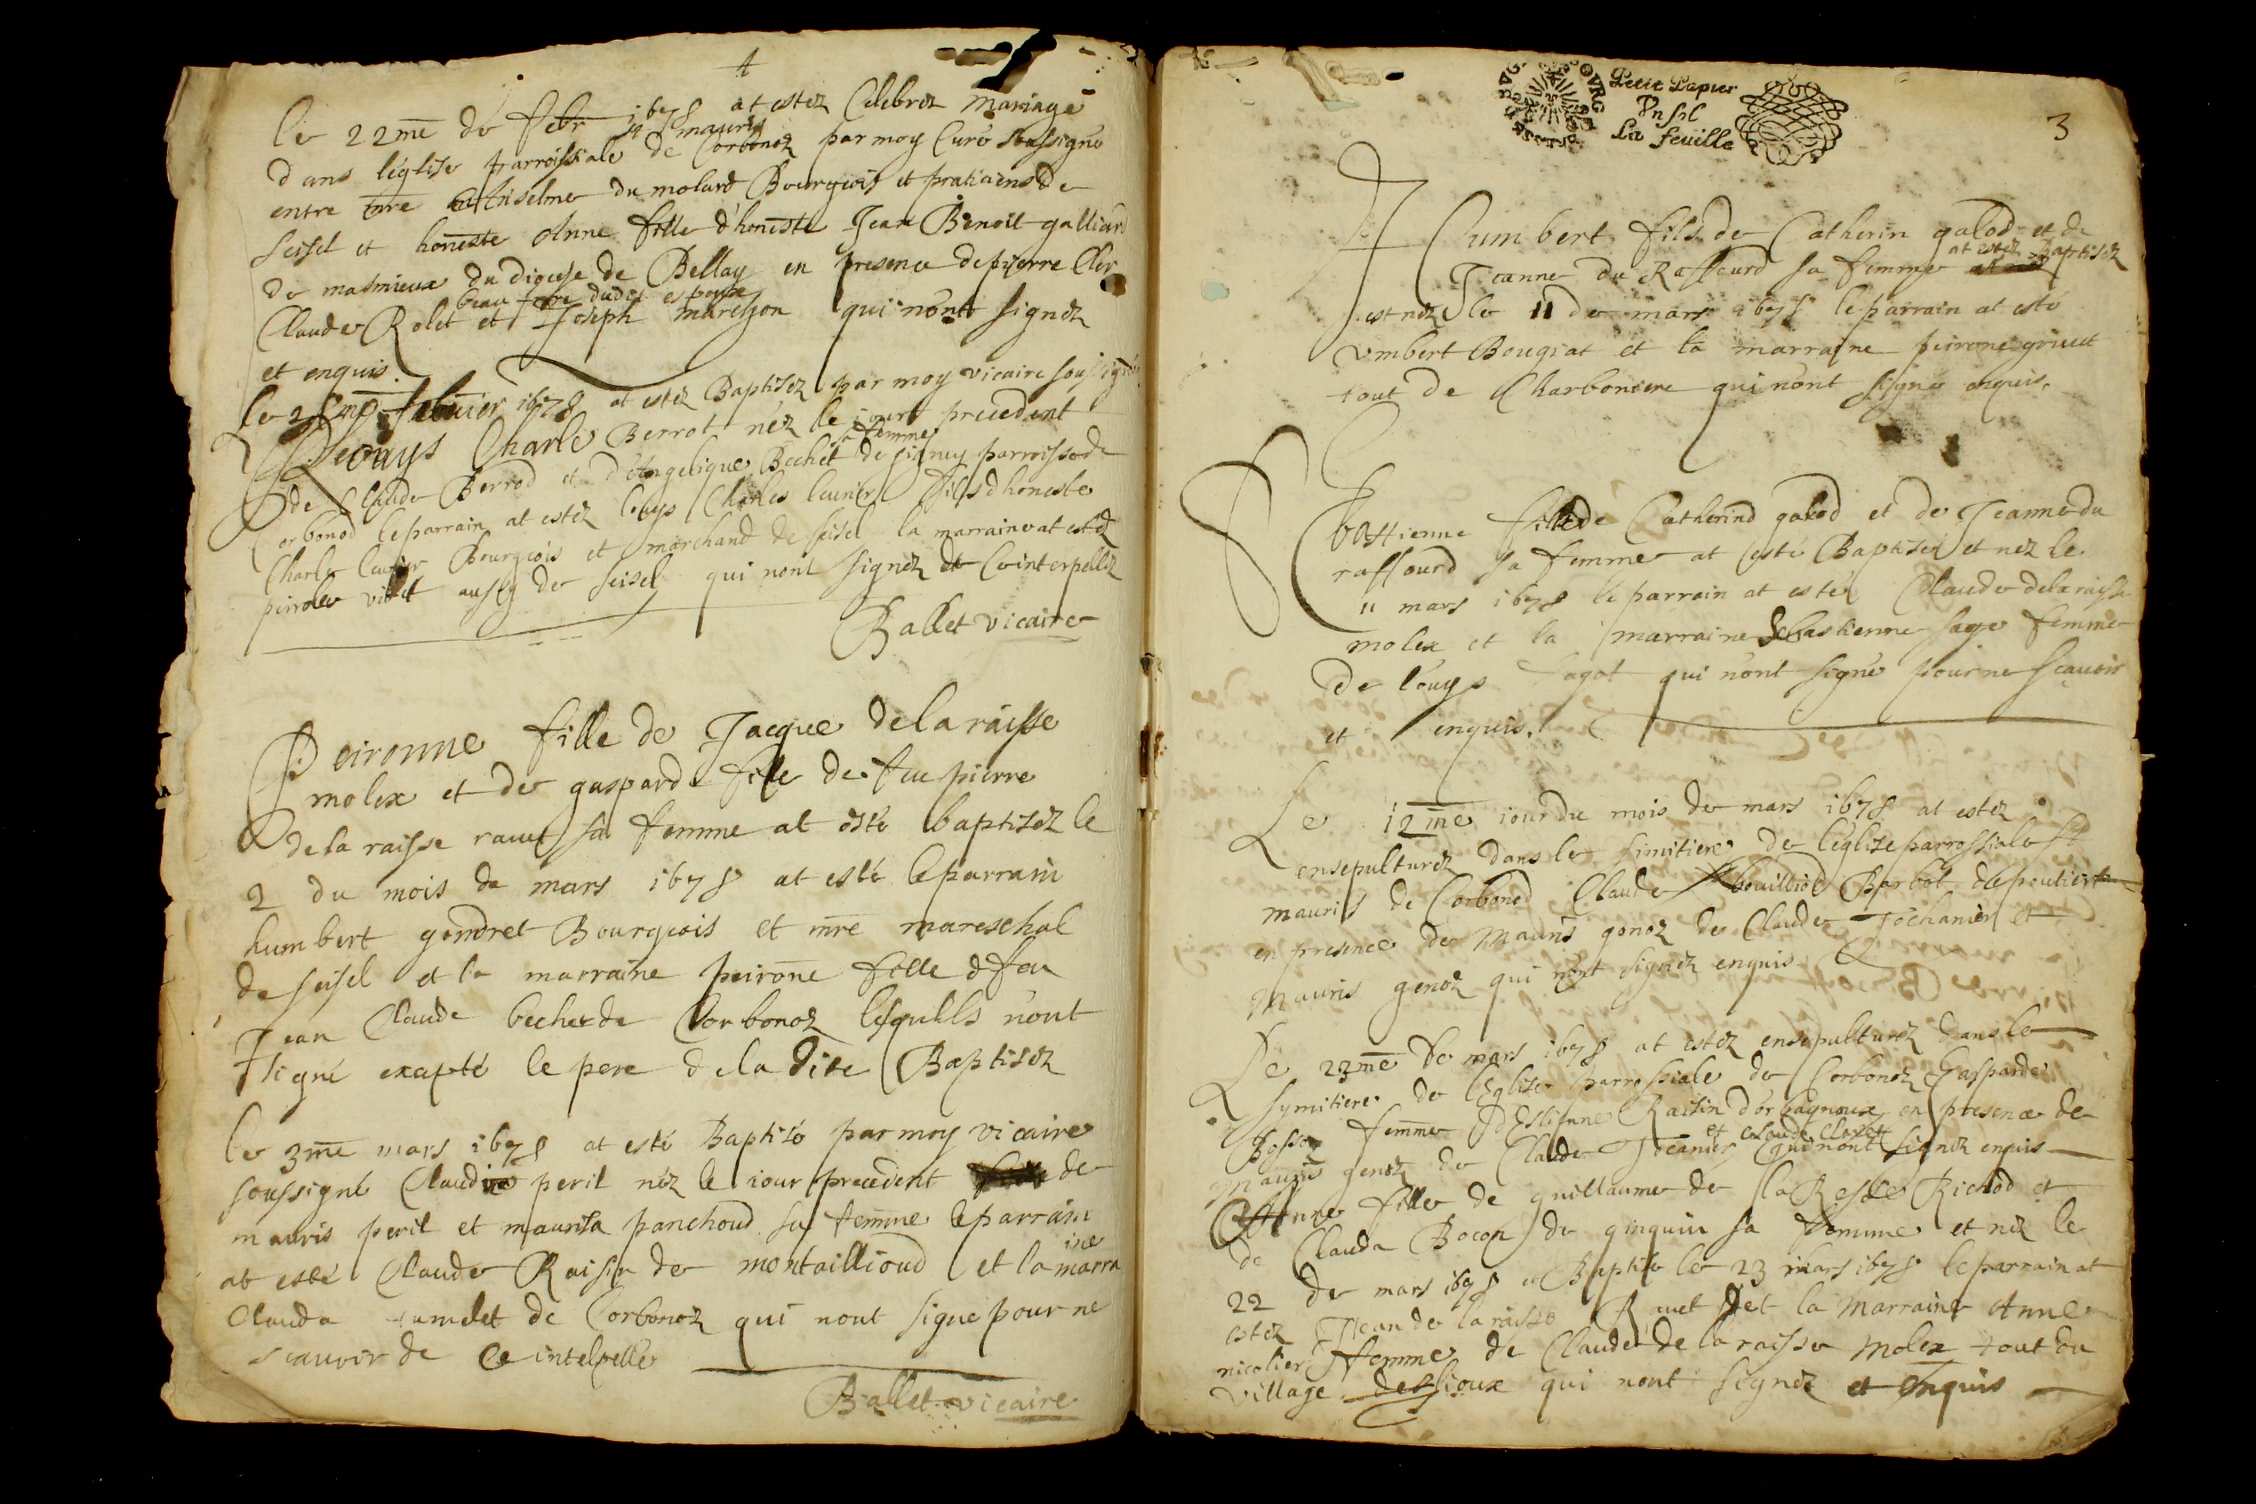 le 22me de febr 1678 at estez Celebrez mariage
dans léglise parroissiale de St mauris Corbonoz par moy Curé soussigné
entre mre Anselme du molard Bourgeois et praticiens de
seisel et honeste Anne fille d'honeste Jean Benoit galliard
de masmieux du diocese de Bellay en presence de pierre Cler
beau frere dudit espoux
Claude Rolet et Joseph marchon qui n'ont signez
et enquis.
le febvrier 1678 at estez Baptisez par moy vicaire soussigné
Charle Berrot néz le iourt precedent
de Claude Berrod et d'Angelique Bechet sa femme de signey parroisse de
Corbonod le parrain at estez louys Charles leurier fils d'honeste
Charle leurier Bourgeois et marchand de seisel la marraine at estez
peirone vibet aussy de seisel qui nont signez de Ce interpellez
Ballet vicaire
Peironne fille de Jacque delaraisse
molex et de gaspard fille de feu pierre
de la raisse ravet sa femme at esté baptisez le
2 du mois de mars 1678 at esté leparrain
humbert gondret Bourgeois et mre mareschal
de seisel et la marraine peirone fille d feu
Jean Claude becherde Corbonoz lesquells n'ont
signé exapté le pere de la dite Baptisez
le 3me mars 1678 at esté Baptisé par moy vicaire
soussigné Claudine peril néz le iour precedent de
mauris peril et maurisa panchoud sa femme leparrain
at esté Claude Raisin de montaillioud et la marraine
Clauda de Corbonoz qui nont signe pour ne
scauoir de Ce intelpellé
Ballet vicaire
Petit Papier
Vn sol
La feuille
3
Humbert fils de Catherin galod et de
Jeanne du Raffourd sa femme at estez Baptisez
est nez le 11 de mars 1678 le parrain at esté
vmbert Bougiat et la marraine peirone griuet
tout de Charboniere qui n'ont signé enquis.
Ebastienne fille de Catherind galod et de Jeanne du
raffourd sa femme at esté Baptisée et nez le
11 mars 1678 le parrain at estéz Claude delaraisse
molex et la marraine Sebastienne sage femme
De louys sagot qui n'ont signé pour ne scauoir
et enquis.
Le 12me iour du mois de mars 1678 at estez
ensepulturez dans le simitiere de leglise parrossiale St
mauris de Corbonod Claude bouilliod Barbot de
en presence de Mauris gonoz de Claude et
Mauris genoz qui n'ont signez enquis
Le 23me de mars 1678 at estez ensepulturez dans le
symitiere de l'Eglise parrossiale de Corbonoz Gasparde
Bosson femme d'Estienne Raisin d'orbagnoux en presence de
mauris genoz de Claude et Claude Clozet qui nont signez enquis
Anne fille de guillaume de la Resse Richod et
de Clauda Bocon de ginquin sa femme et néz le
22 de mars 1678 et Baptisé le 23 mars 1678 le parrain at
estez Jean de la raisse Ravet et la Marraine Anne
nicolier femme de Claude de la raisse Molex tout du
village qui nont signez et enquis